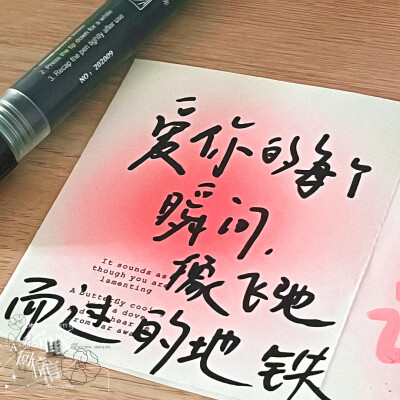 2. Press the tip down for a while
3. Recap the pen tightly after use
NO，202009
爱你的每个
瞬间，
像飞驰
而过的地铁
It sounds as
though you are
lamenting
A butterfly